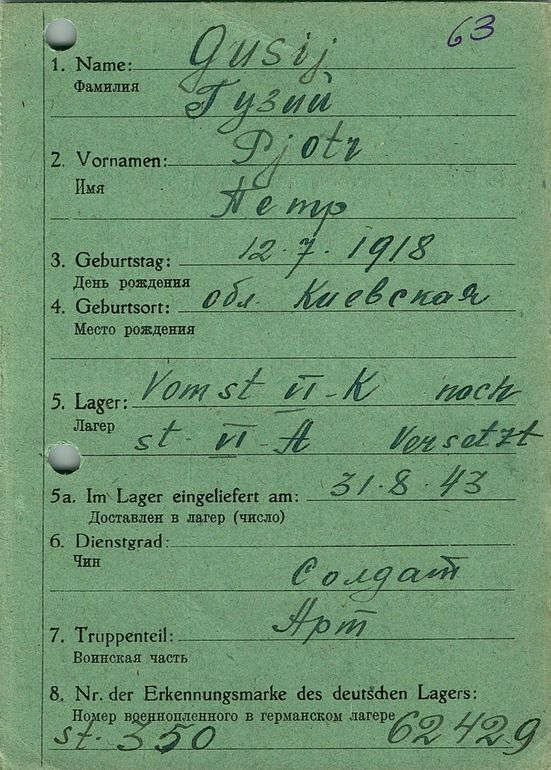 63
1. Name: Gusij
Фамилия
Гузий
2. Vornamen: Pjotr
Имя
Петр
3. Geburtstag: 12.7.1918
День рождения
4. Geburtsort: обл. Киевская
Место рождения
5. Lager: Vom st VI-K noch
Лагер
st. VI-A Versetzt
5a. Im Lager eingeliefert am: 31.8.43
Доставлен в лагер (число)
6. Dienstgrad:
Чин
Солдат
7. Truppenteil: Арт
Воинская часть
8. Nr. der Erkennungsmarke des deutschen Lagers:
Номер военнопленного в германском лагере
st. 350 62429